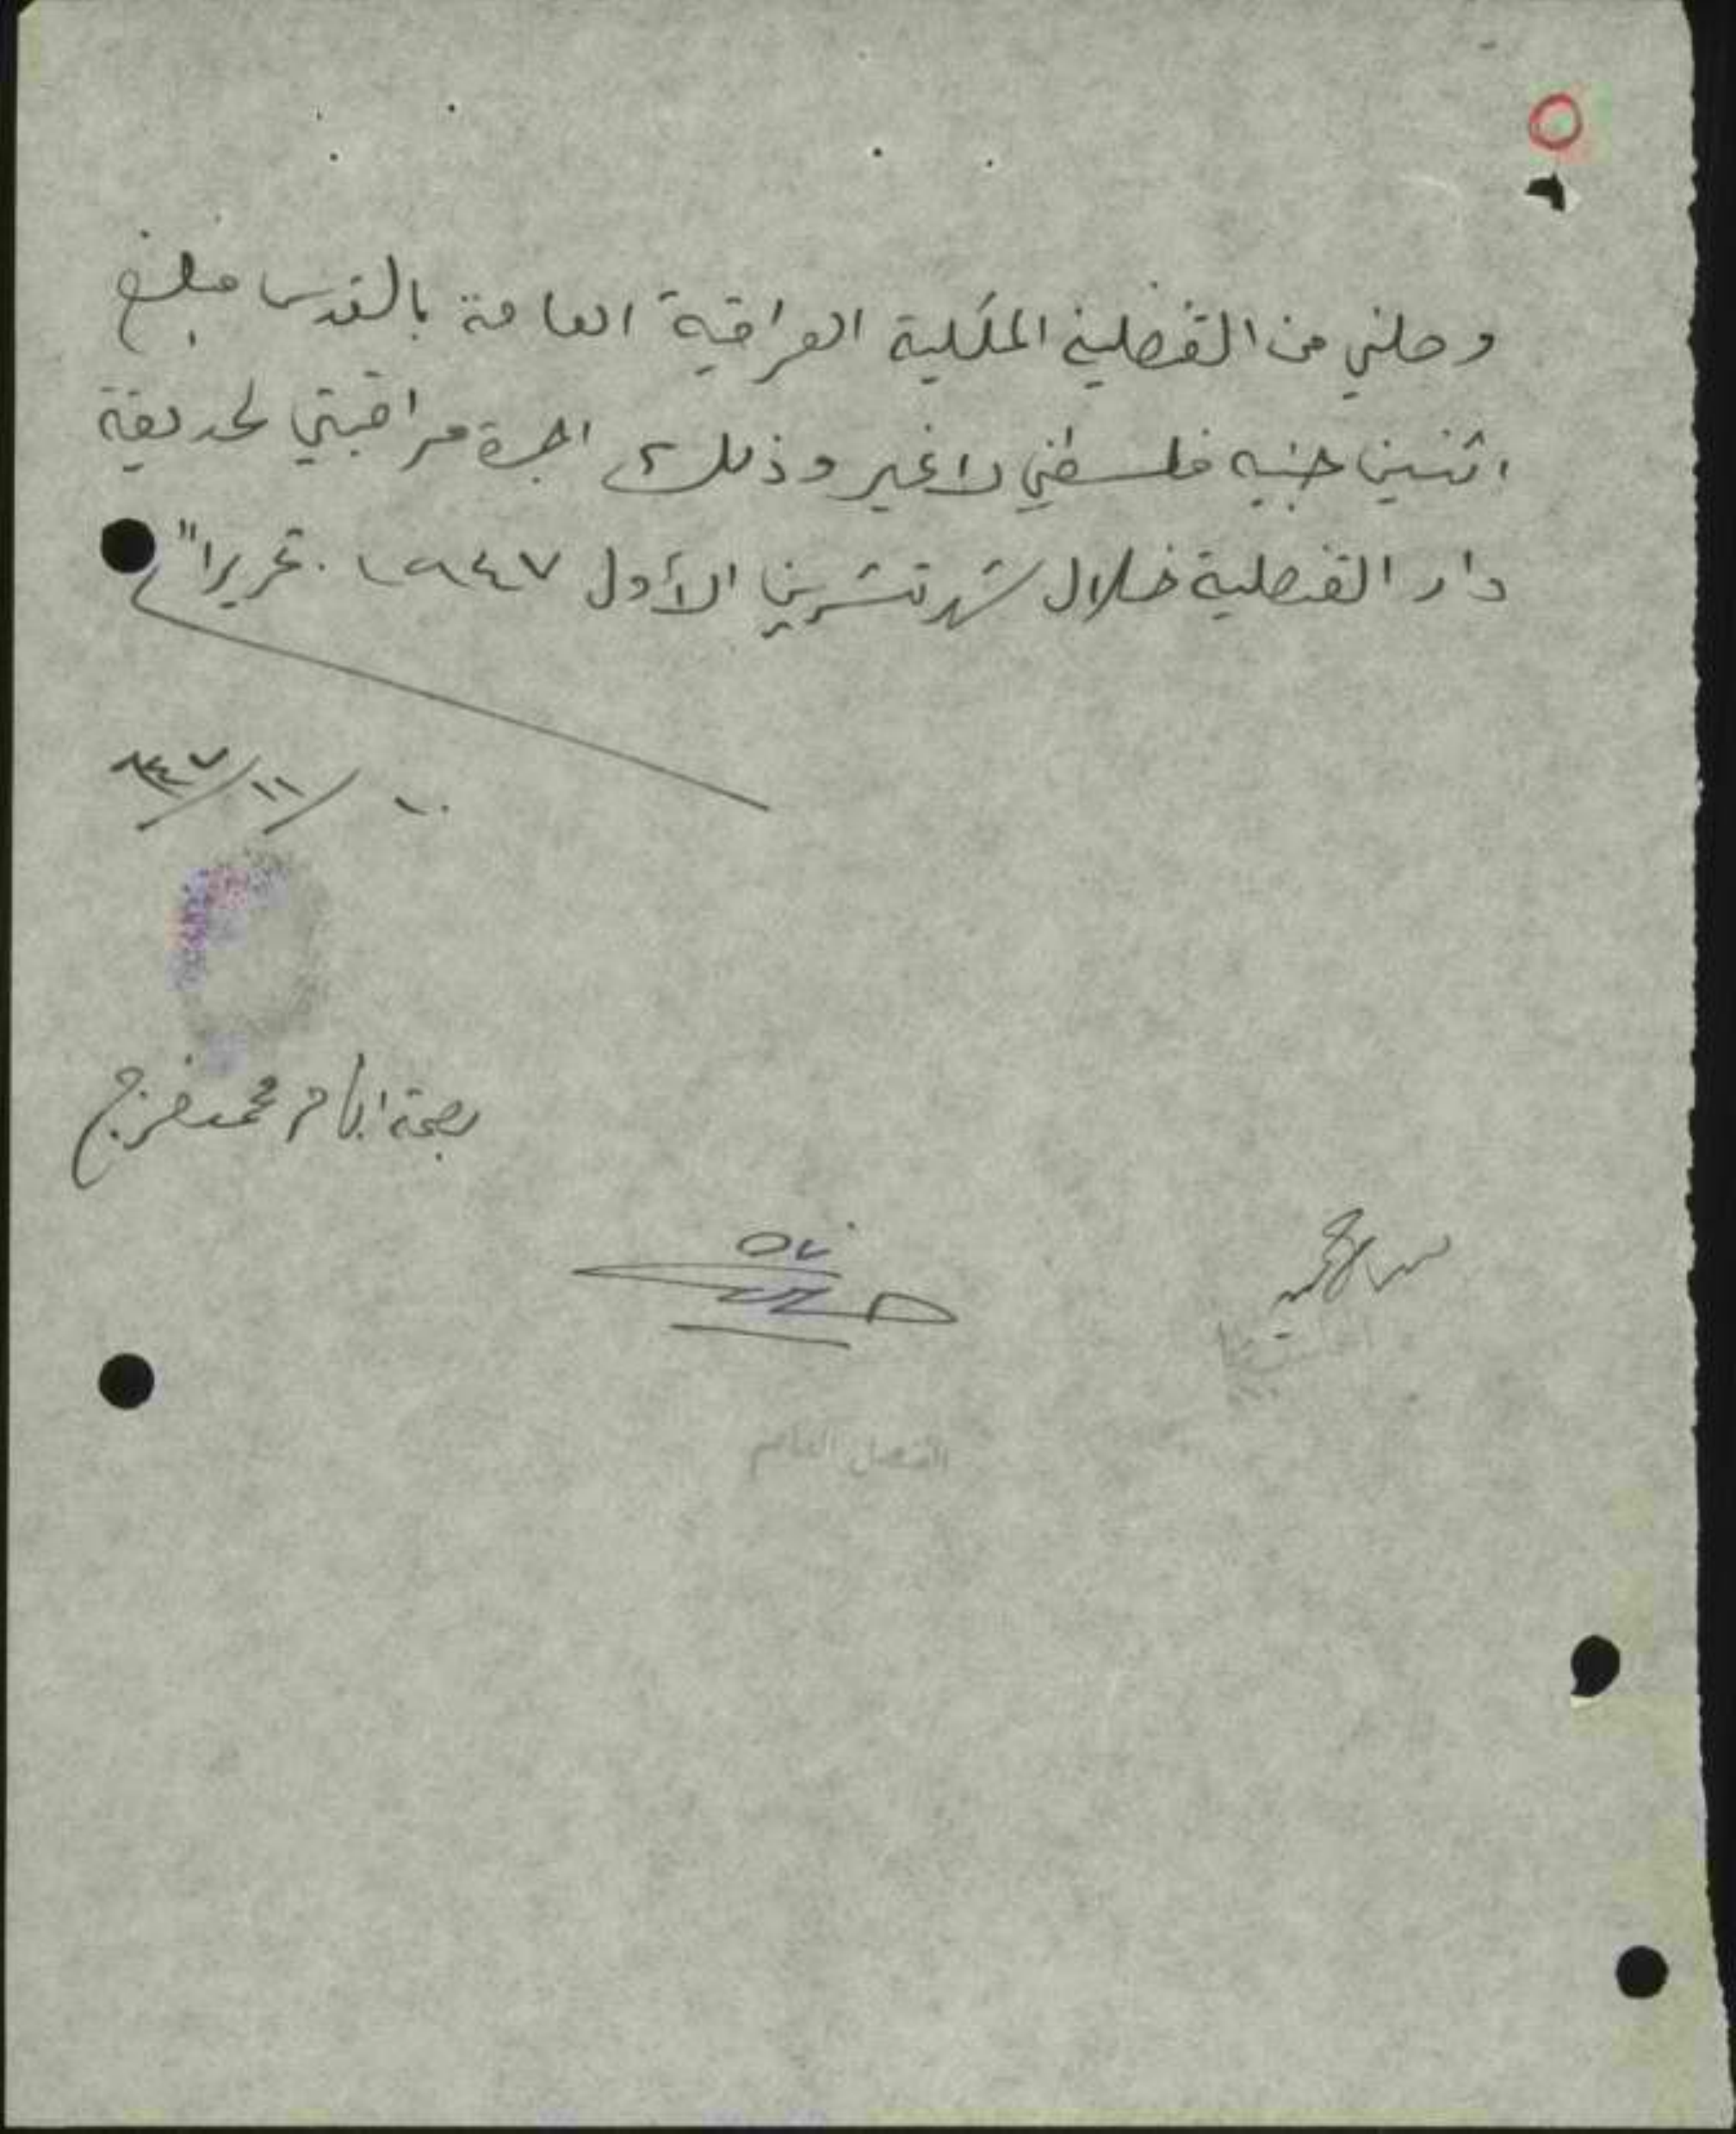 ٥
وصلني من القنصلية الملكية العراقية العامة بالقدس مبلغ
اثنين جنيه فلسطيني لا غير وذلك اجرة مراقبتي لحديقة
دار القنصلية خلال شهر تشرين الأول ١٩٤٧ . تحريرا"
١٠ / ١١ / ٩٤٧
بصمة ابهام محمد فرج
القنصل العام